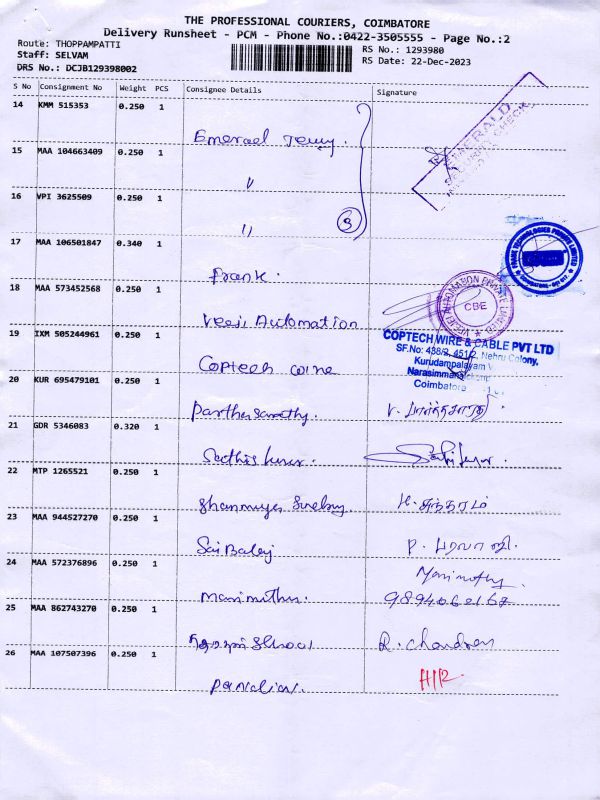 THE PROFESSIONAL COURIERS, COIMBATORE
Delivery Runsheet - PCM - Phone No.:0422-3505555 - Page No.:2
Route: THOPPAMPATTI
RS No.: 1293980
Staff: SELVAM
RS Date: 22-Dec-2023
DRS No.: DCJB129398002
S No Consignment No Weight PCS Consignee Details Signature
14 KMM 515353 0.250 1
EMERALD
15 MAA 104663409 0.250 1
〃
16 VPI 3625509 0.250 1
〃 3
17 MAA 106501847 0.340 1
Prank.
18 MAA 573452568 0.250 1
CBE
Veeji Automation
19 IXM 505244961 0.250 1
COPTECH WIRE & CABLE PVT LTD
SF.No: 438/3, 451/2, Nehru Colony,
Kurudampalayam
Coimbatore
Coptech wire
20 KUR 695479101 0.250 1
Parthasarathy. V. பார்த்தசாரதி
21 GDR 5346083 0.320 1
Sathiskumar
22 MTP 1265521 0.250 1
சுந்தரம்
23 MAA 944527270 0.250 1
Sai Balaji P. பாலாஜி.
24 MAA 572376896 0.250 1
Marimuthu. 9894062167
25 MAA 862743270 0.250 1
School R. Chandran
26 MAA 107507396 0.250 1